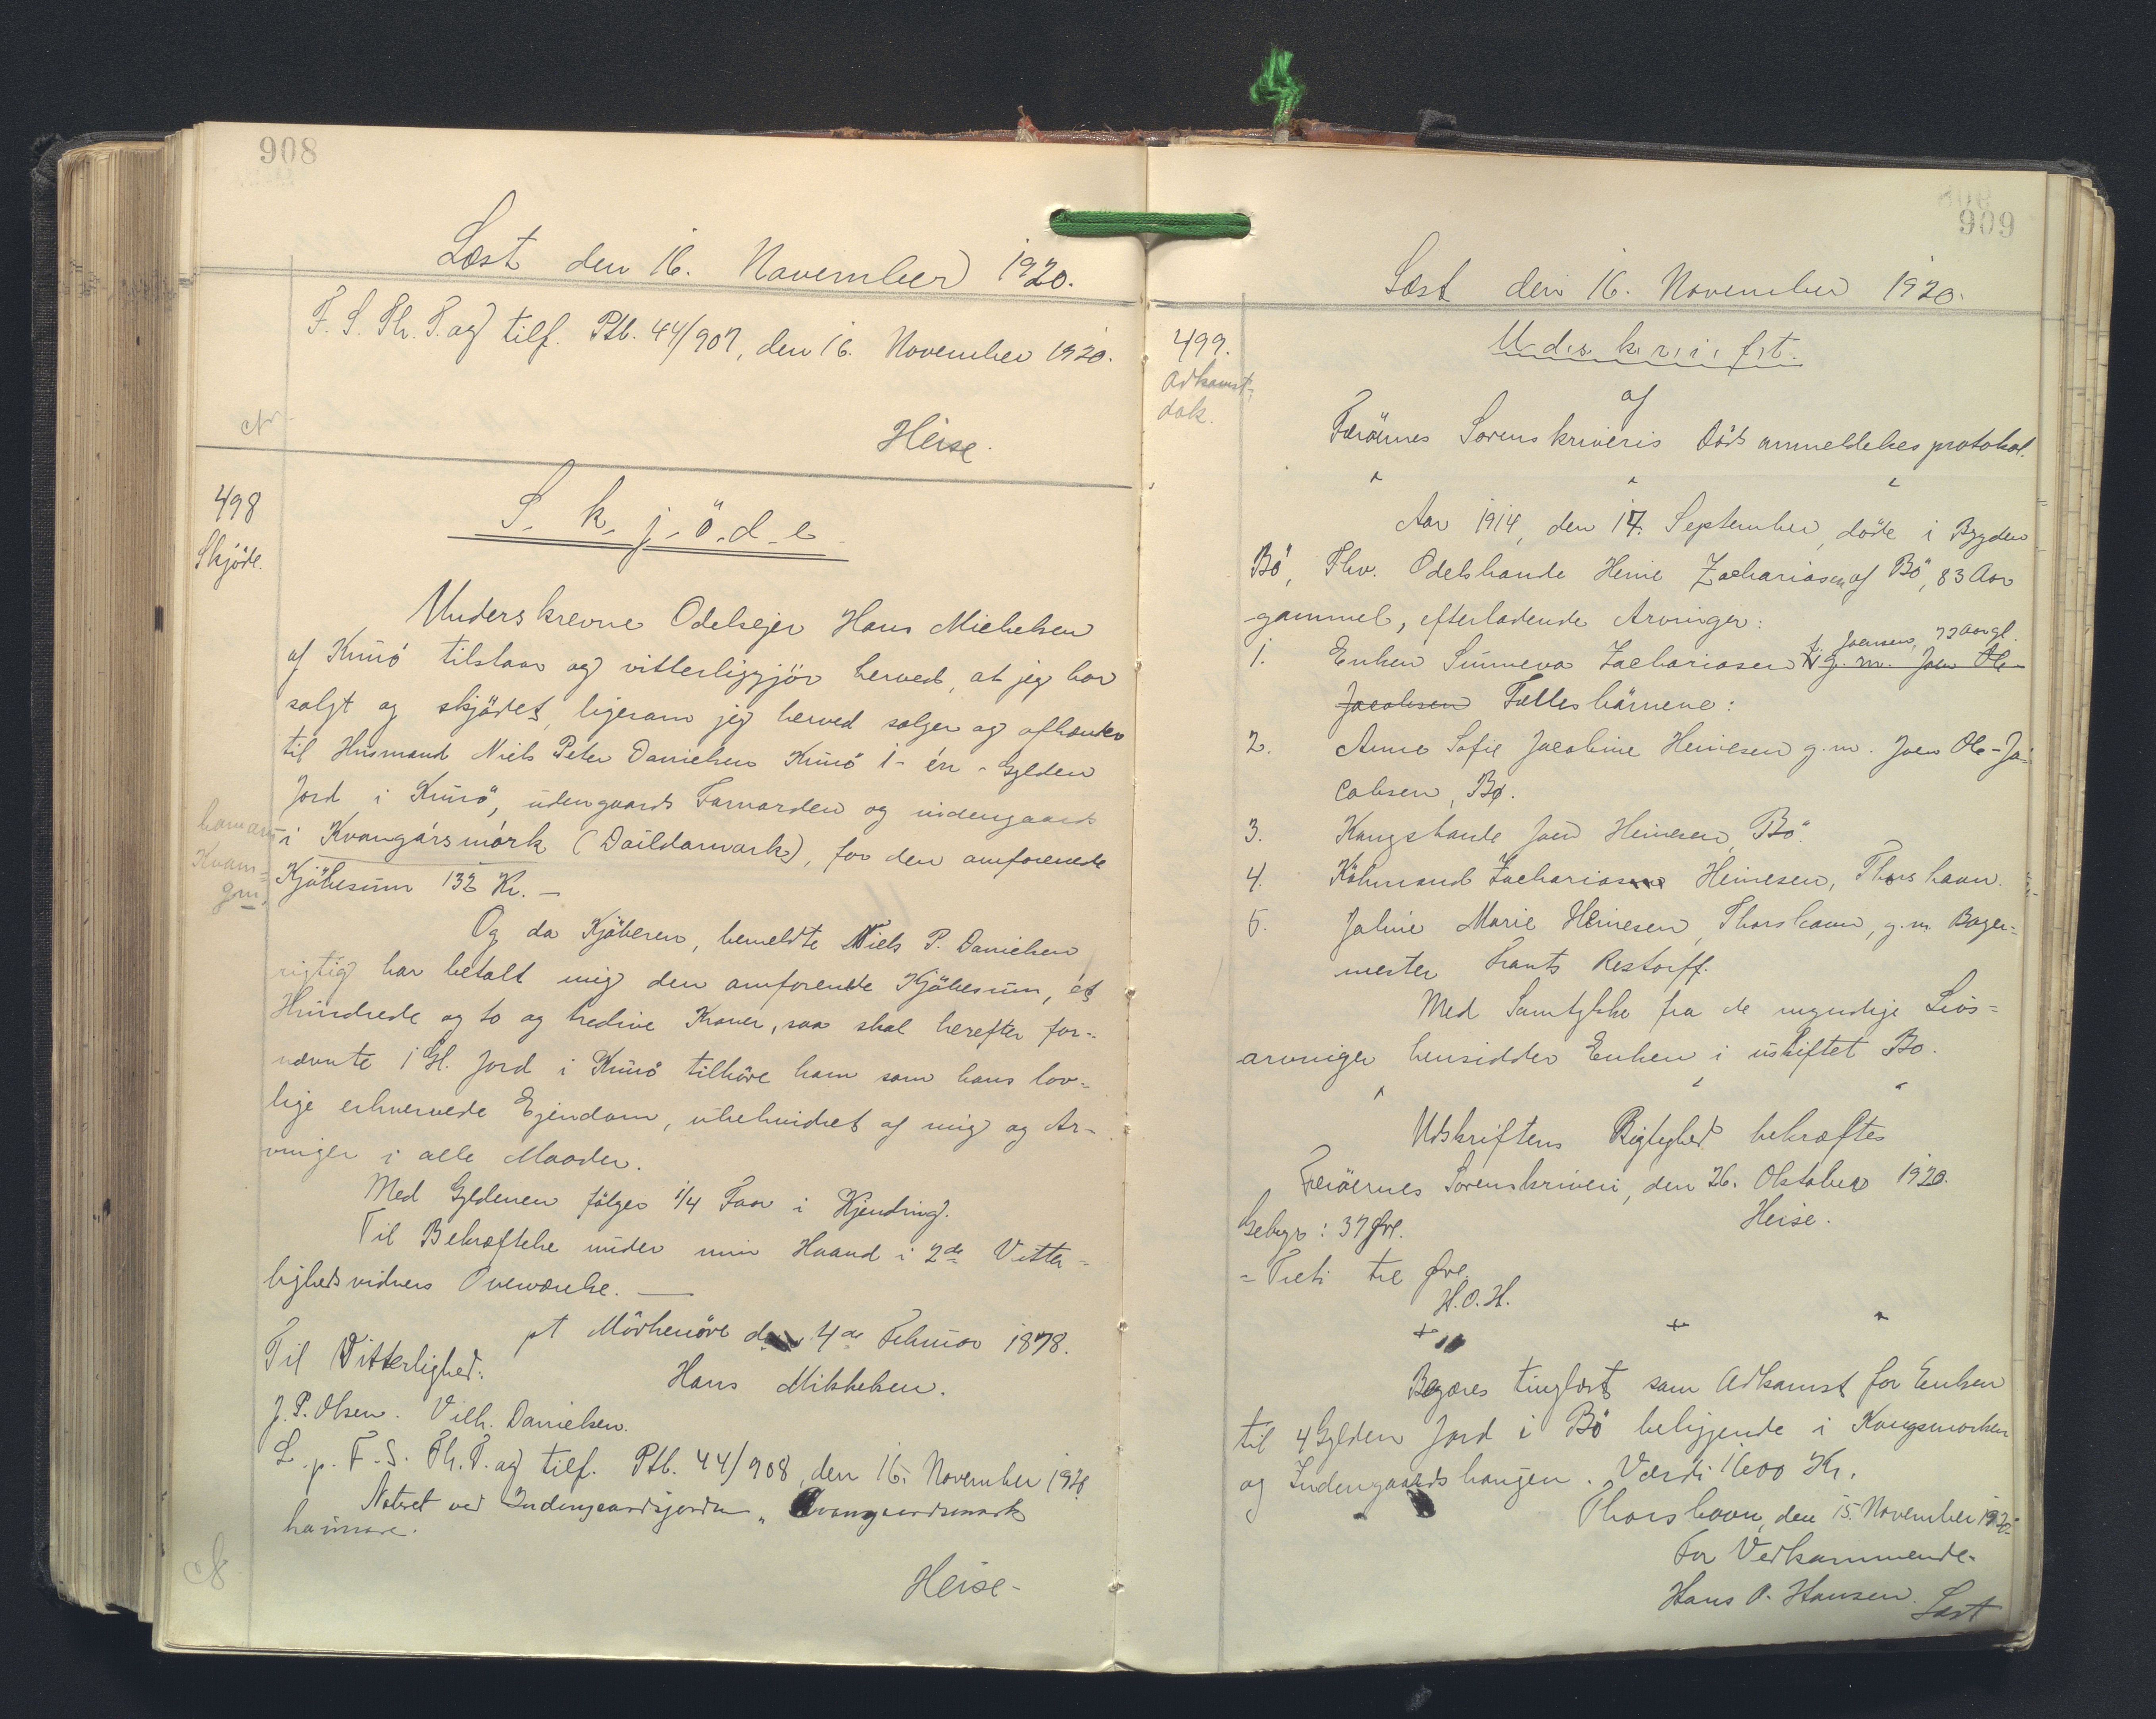 908
Læst den 16. November 1920.
F. S. Th. P. og tilf. Ptb. 44/907, den 16. November 1920.
Heise.
498
Skjöde.
Skjöde
Underskrevne Odelsejer Hans Michelsen
af Kunö tilstaar og vitterliggjör herved, at jeg har
solgt og skjödet, ligesom jeg herved sælger og afhænder
til Husmand Niels Peter Danielsen Kunö 1 - én - Gylden
Jord i Kunö, udengaards Farmarden og indengaards
i Kvangársmórk (Daildarmark), for den omforenede
Kjöbesum 132 Kr. —
Og da Kjöberen, bemeldte Niels P. Danielsen
rigtig har betalt mig den omforente Kjöbesum, ét
Hundrede og to og tredive Kroner, saa skal herefter for-
nævnte 1 Gl. Jord i Kunö tilhöre ham som hans lov-
lige erhvervede Ejendom, ubehindret af mig og Ar-
vinger i alle Maader.
Med Gyldenen fölger 1/4 Faar i Hjending.
Til Bekræftelse under min Haand i 2de Vitter-
lighedsvidners Overværelse. —
pt Mörkenöre den 4de Februar 1878.
Til Vitterlighed: Hans Mikkelsen.
J. P. Olsen. Vilh. Danielsen.
L. p. F. S. Th. P. og tilf. Ptb. 44/908, den 16. November 1920
Noteret ved Indengaardsjorden „Kvangaardsmark
Heise-
909
Læst den 16. November 1920.
499.
Adkomst-
dok.
Udskrift
af
Færöernes Sorenskriveris Dödsanmeldelsesprotokol.
Aar 1914, den 17. September, döde i Bygden
Bö, Fhv. Odelsbonde Heine Zachariasen af Bö, 83 Aar
gammel, efterladende Arvinger:
f. Joensen, 77 Aar gl.
1. Enken Sunneva Zachariasen g. m. Joen Ole
Jacobsen Fællesbörnene:
2. Anne Sofie Jacobine Heinesen g. m. Joen Ole-Ja-
cobsen, Bø.
3. Kongsbonde Joen Heinesen, Bö.
4. Köbmand Zacharias Heinesen, Thorshavn.
5. Jaline Marie Heinesen, Thorshavn, g. m. Bager-
mester Frants Restorff.
Med Samtykke fra de myndige Livs-
arvinger hensidder Enken i uskiftet Bo.
Udskriftens Rigtighed bekræftes
Færöernes Sorenskriveri, den 26. Oktober 1920.
Heise.
Gebyr: 37 Øre.
= Treti Øre.
H. O. H.
Begæres tinglæst som Adkomst for Enken
til 4 Gylden Jord i Bö beliggende i Kongsmorken
og Indengaardshaugen. Værdi 1600 Kr.
Thorshavn, den 15. November 1920.
For Vedkommende.
Hans O. Hansen.
Læst